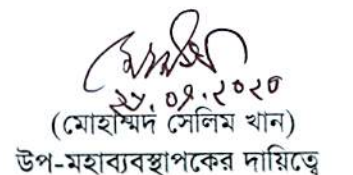 ২৮.০৭.২০২০
(মোহাম্মদ সেলিম খান)
উপ-মহাব্যবস্থাপকের দায়িত্বে